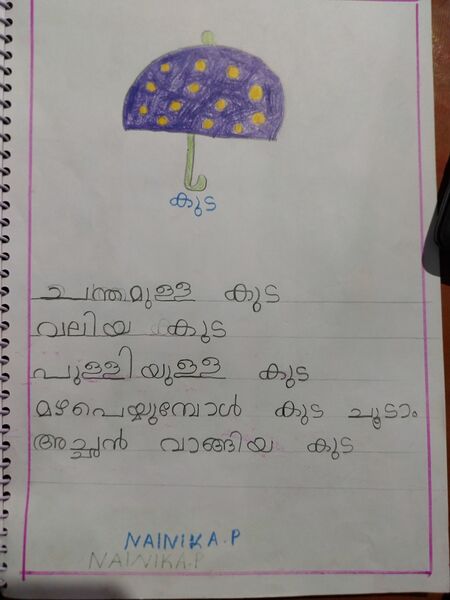 കുട
ചന്തമുള്ള കുട
വലിയ കുട
പുള്ളിയുള്ള കുട
മഴപെയ്യുമ്പോൾ കുട ചൂടാം
അച്ഛൻ വാങ്ങിയ കുട
NAINIKA.P
NAINIKA.P